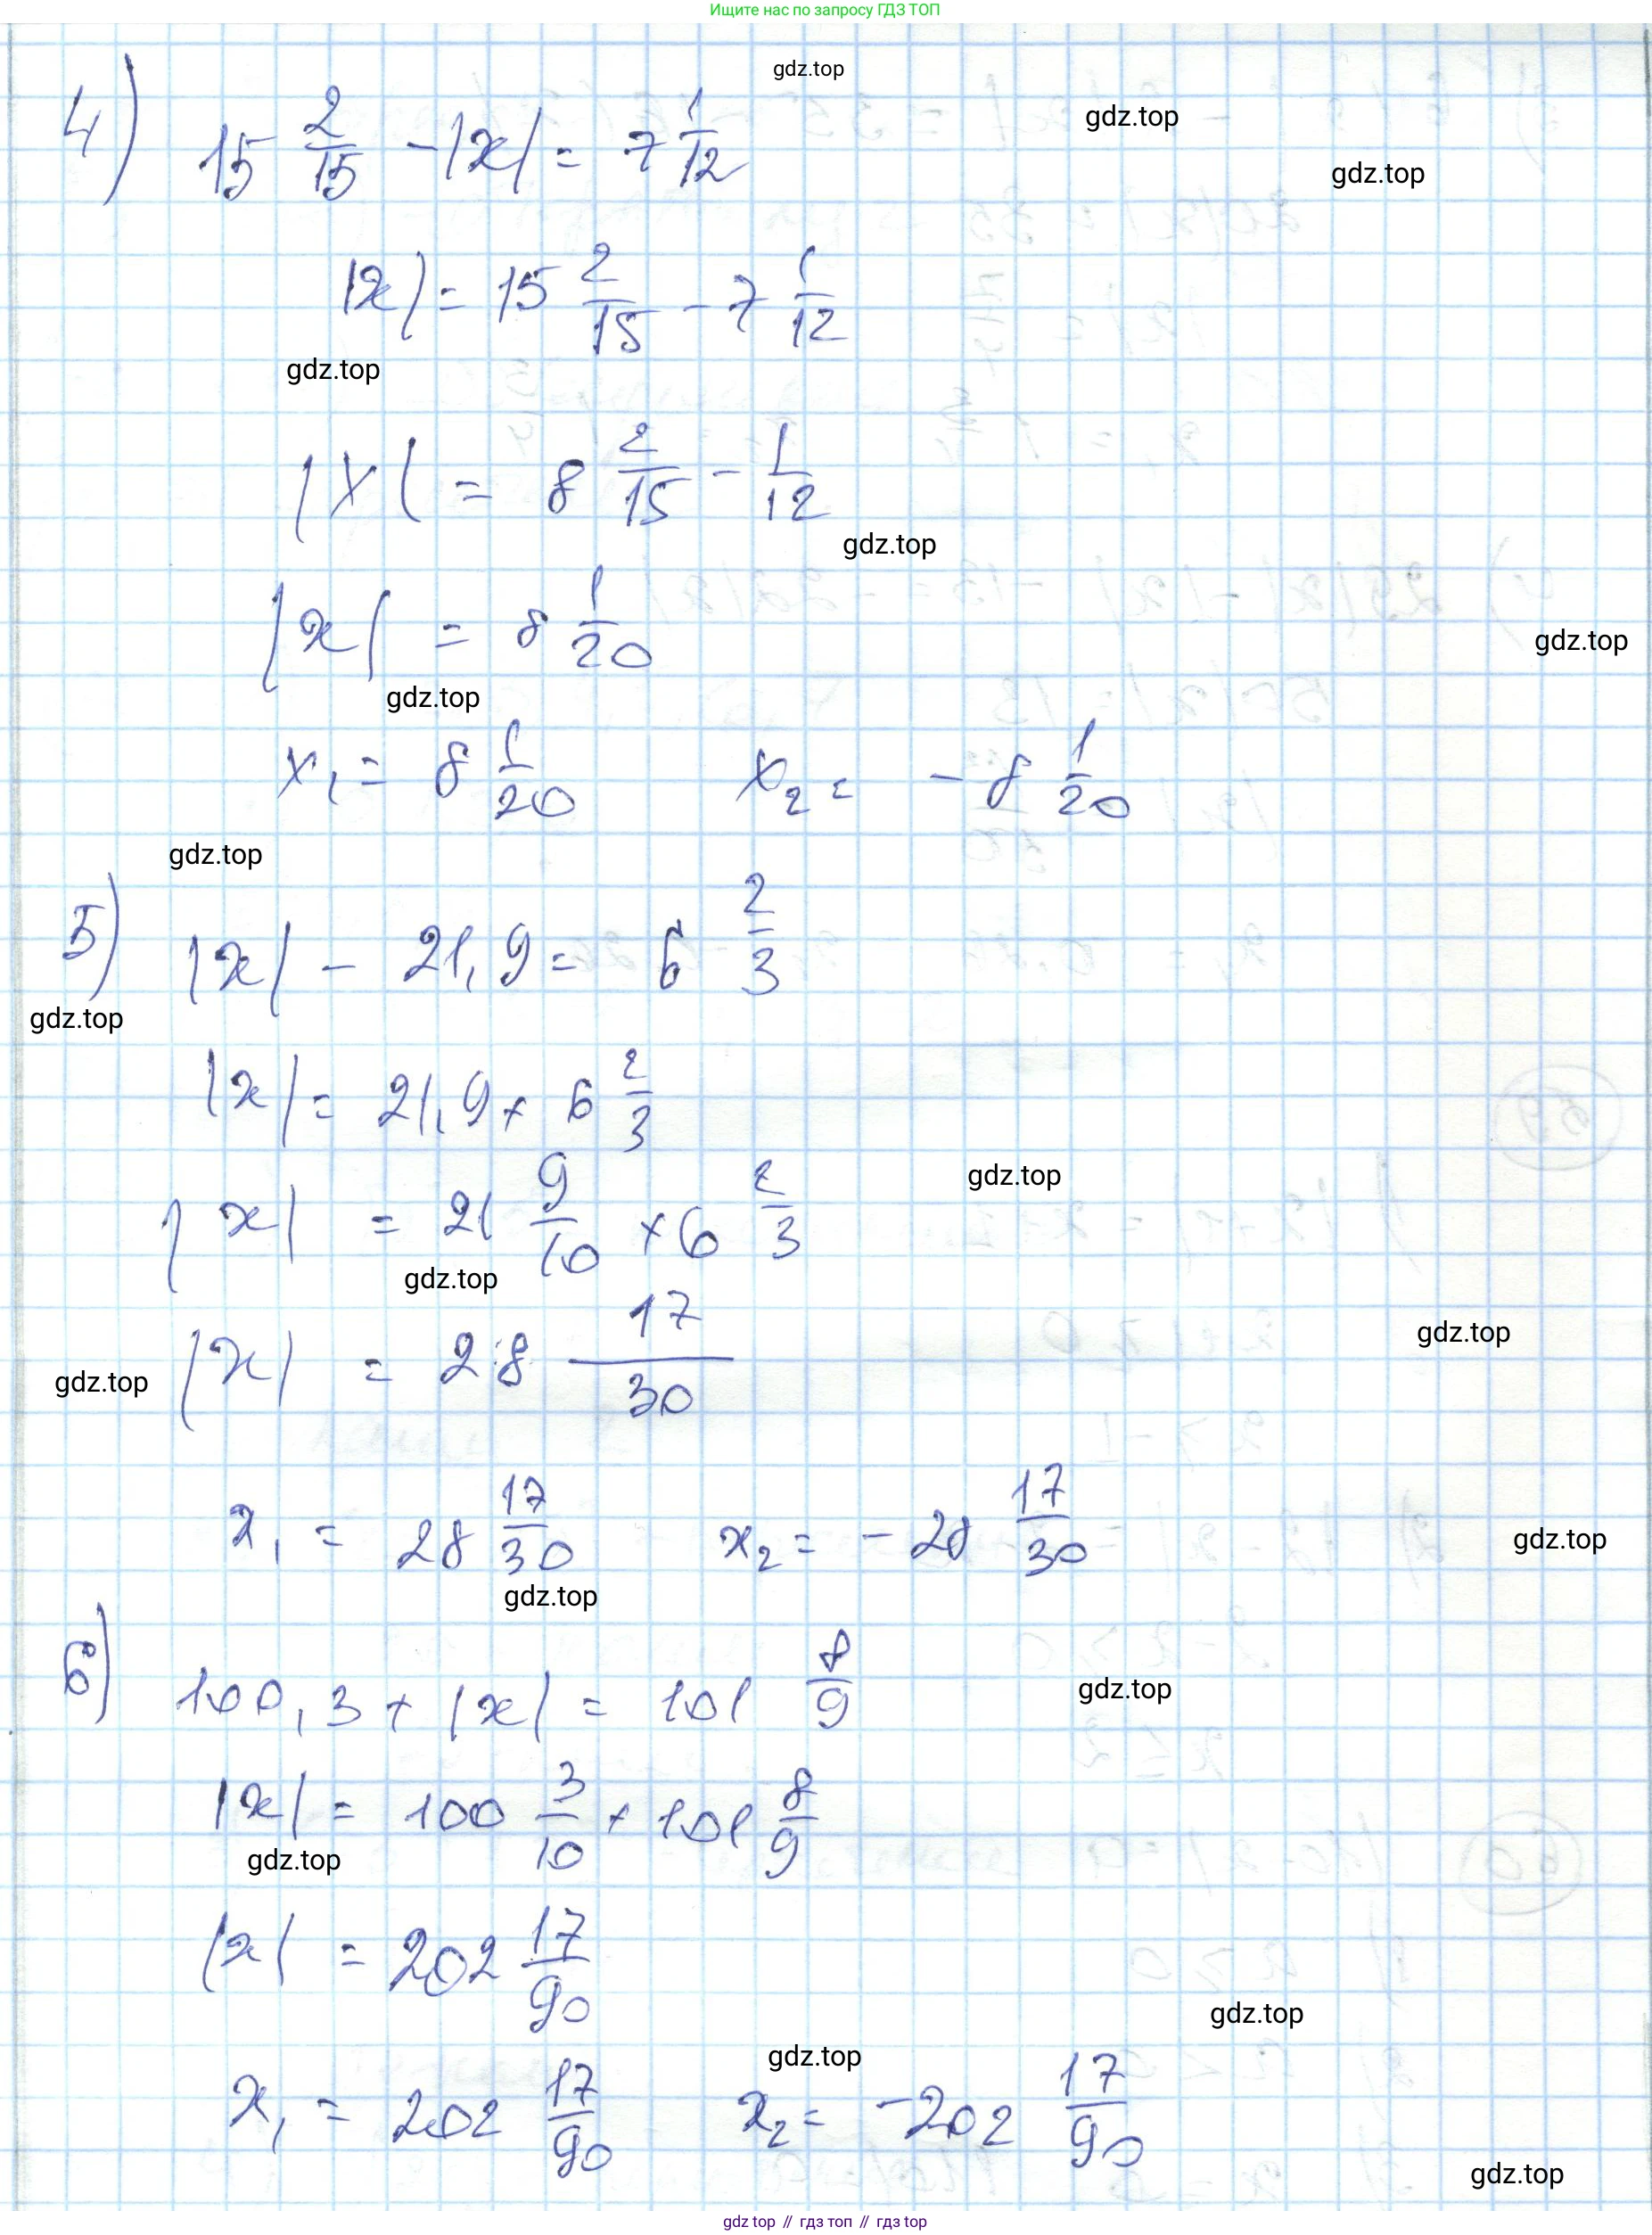 Ищите нас по запросу ГДЗ ТОП
gdz.top
gdz.top
4) 15 2/15 - |x| = 7 1/12
gdz.top
|x| = 15 2/15 - 7 1/12
gdz.top
|x| = 8 2/15 - 1/12
gdz.top
|x| = 8 1/20
gdz.top
gdz.top
x₁ = 8 1/20 x₂ = - 8 1/20
gdz.top
5) |x| - 21,9 = 6 2/3
gdz.top
|x| = 21,9 + 6 2/3
gdz.top
|x| = 21 9/10 + 6 2/3
gdz.top
gdz.top
|x| = 28 17/30
gdz.top
x₁ = 28 17/30 x₂ = - 28 17/30
gdz.top
gdz.top
6) 100,3 + |x| = 101 8/9
gdz.top
|x| = 100 3/10 + 101 8/9
gdz.top
|x| = 202 17/90
gdz.top
gdz.top
x₁ = 202 17/90 x₂ = -202 17/90
gdz.top
gdz top // гдз топ // гдз top